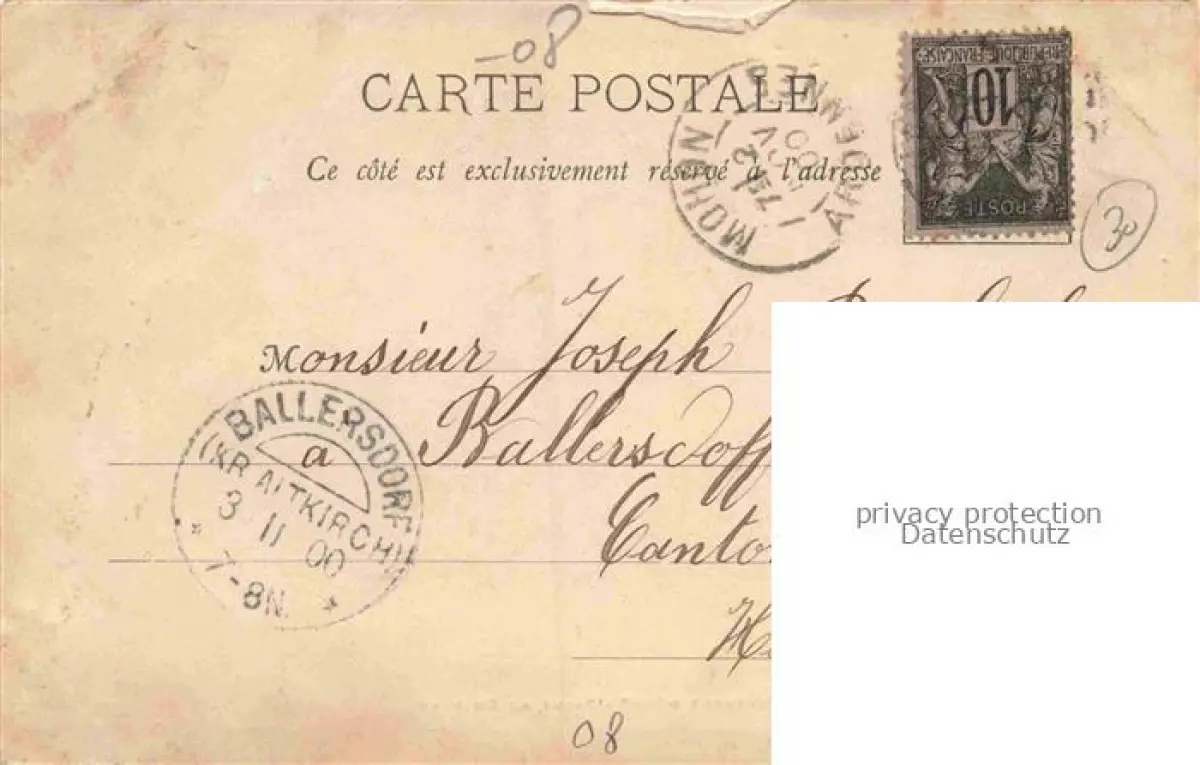 -08
CARTE POSTALE
Ce côté est exclusivement réservé à l'adresse
MOHON
ARDENNES
REPUBLIQUE FRANÇAISE
10
POSTE
30
Monsieur Joseph
a Ballersdoff
Canto
BALLERSDORF
(KR. ALTKIRCH)
3 11 00
7-8N.
08
privacy protection
Datenschutz